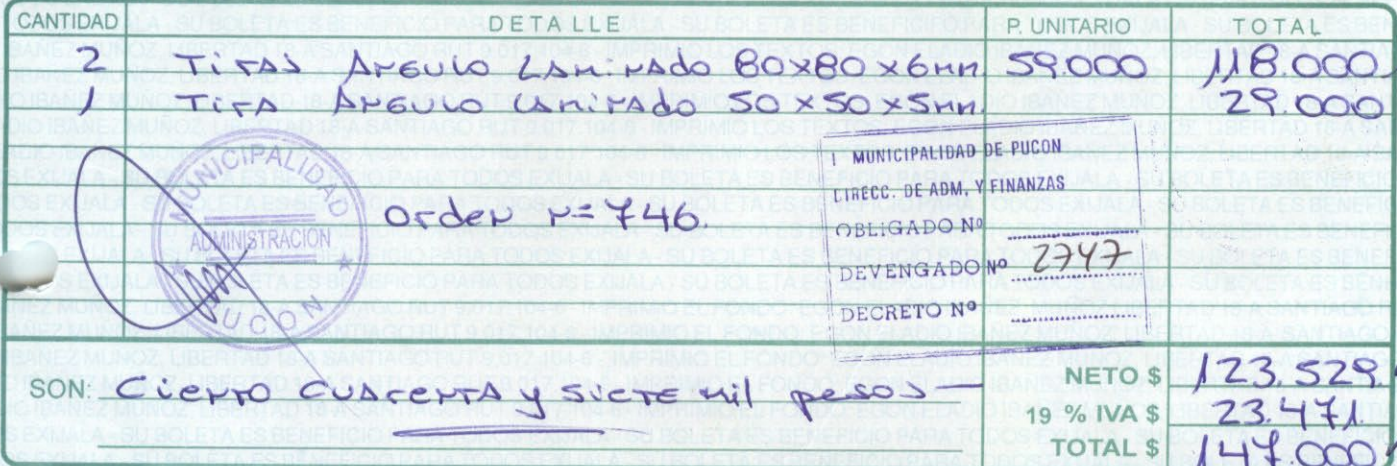 CANTIDAD DETALLE P. UNITARIO TOTAL
2 Tiras Angulo Laminado 80x80x6mm 59.000 118.000
1 Tira Angulo Laminado 50x50x5mm. 29.000
MUNICIPALIDAD
ADMINISTRACIÓN
PUCON
orden n=746
I MUNICIPALIDAD DE PUCON
DIRECC. DE ADM, Y FINANZAS
OBLIGADO Nº
DEVENGADO Nº 2747
DECRETO Nº
NETO $ 123.529
SON: Ciento cuarenta y siete mil pesos
19 % IVA $ 23.471
TOTAL $ 147.000